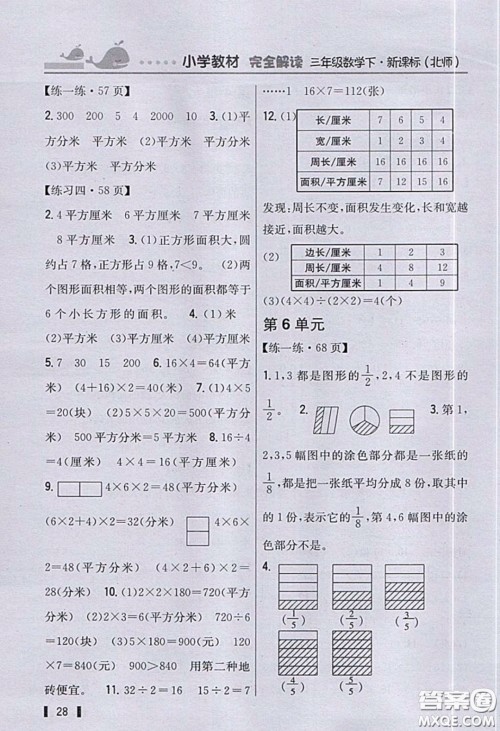 小学教材 完全解读 三年级数学下·新课标(北师)
【练一练·57页】
2.300 200 5000 8 3.(1)平
方分米 平方分米 (2)平方厘米
(3)平方厘米 平方厘米
【练习四·58页】
2.4平方厘米 6平方厘米 7平方厘米
8平方厘米 3.(1)正方形面积大,圆
约占7格,正方形占9格,7<9。 (2)两
个图形面积相等,两个图形的面积都等于
6个小长方形的面积。
5.7 30 15 200 6.16×4=64(平方厘
米) (4+16)×2=40(厘米) 7.(1)4×5
=20(块) (2)5×5=25(平方分米)
25×20=500(平方分米) 5平方米=500平方
分米 500平方分米=5平方米 8.16÷4
=4(厘米) 4×4=16(平方厘米)
9. 4×6×2=48(平方分米)
(6×2+4)×2=32(分米) 4×6×
2=48(平方分米) (4×2+6)×2=
28(分米) 10.(1)2×2×180=720(平方
分米) (2)3×2×120=720(平方分米)
(3)720平方分米=720平方分米 720÷6=
120(块) (4)5×180=900(元) 7×120
=840(元) 900>840 用第二种地
砖便宜。 11.32÷2=16 15÷2=7
28
……1 16×7=112(张)
12.(1)
长/厘米 7 6 5 4
宽/厘米 1 2 3 4
周长/厘米 16 16 16 16
面积/平方厘米 7 12 15 16
发现:周长不变,面积发生变化,长和宽越
接近,面积越大。
(2)
边长/厘米 1 2 3
周长/厘米 4 8 12
面积/平方厘米 1 4 9
(3)(4×4)÷(2×2)=4(个)
第6单元
【练一练·68页】
1.1,3都是图形的1/2,2,4不是图形的
1/2。 2. 3.第1,
2,3,5幅图中的涂色部分都是一张纸的
1/8,都是把一张纸平均分成8份,取其中
的1份,表示它的1/8,第4,6幅图中的涂
色部分不是。
4.
(1/5) (2/5) (3/5)
(4/5) (5/5)
答案圈
MXQE.COM